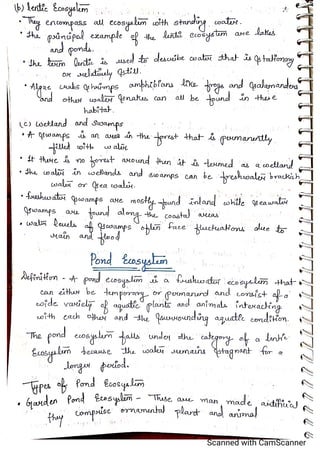 (b) lentic Ecosystem
• They encompass all ecosystem with standing water.
• The principal example of the lentic ecosystem are lakes
and ponds.
• The term lentic is used to describe water that is stationary
or relatively still.
• Algae crabs shrimps amphibians like frogs and salamanders
and other water snakes can all be found in these
habitat.
(c) Wetland and Swamps
• A swamps is an area in the forest that is permanently
filled with water
• It there is no forest around then it is termed as a wetland
• The water in wetlands and swamps can be freshwater brackish
water or sea water.
• freshwater swamps are mostly found inland while seawater
swamps are found along the coastal areas
• water levels of swamps often face fluctuations due to
rain and flood
Pond Ecosystem
Definition - A pond ecosystem is a freshwater ecosystem that
can either be temporary or permanent and consist of a
wide variety of aquatic plants and animals interacting
with each other and the surrounding aquatic condition.
The pond ecosystem falls under the category of a lentic
Ecosystem because the water remains stagnant for a
longer period.
Types of Pond Ecosystem
• Garden Pond Ecosystem - These are man made artificial
they comprise ornamental plant and animal
Scanned with CamScanner